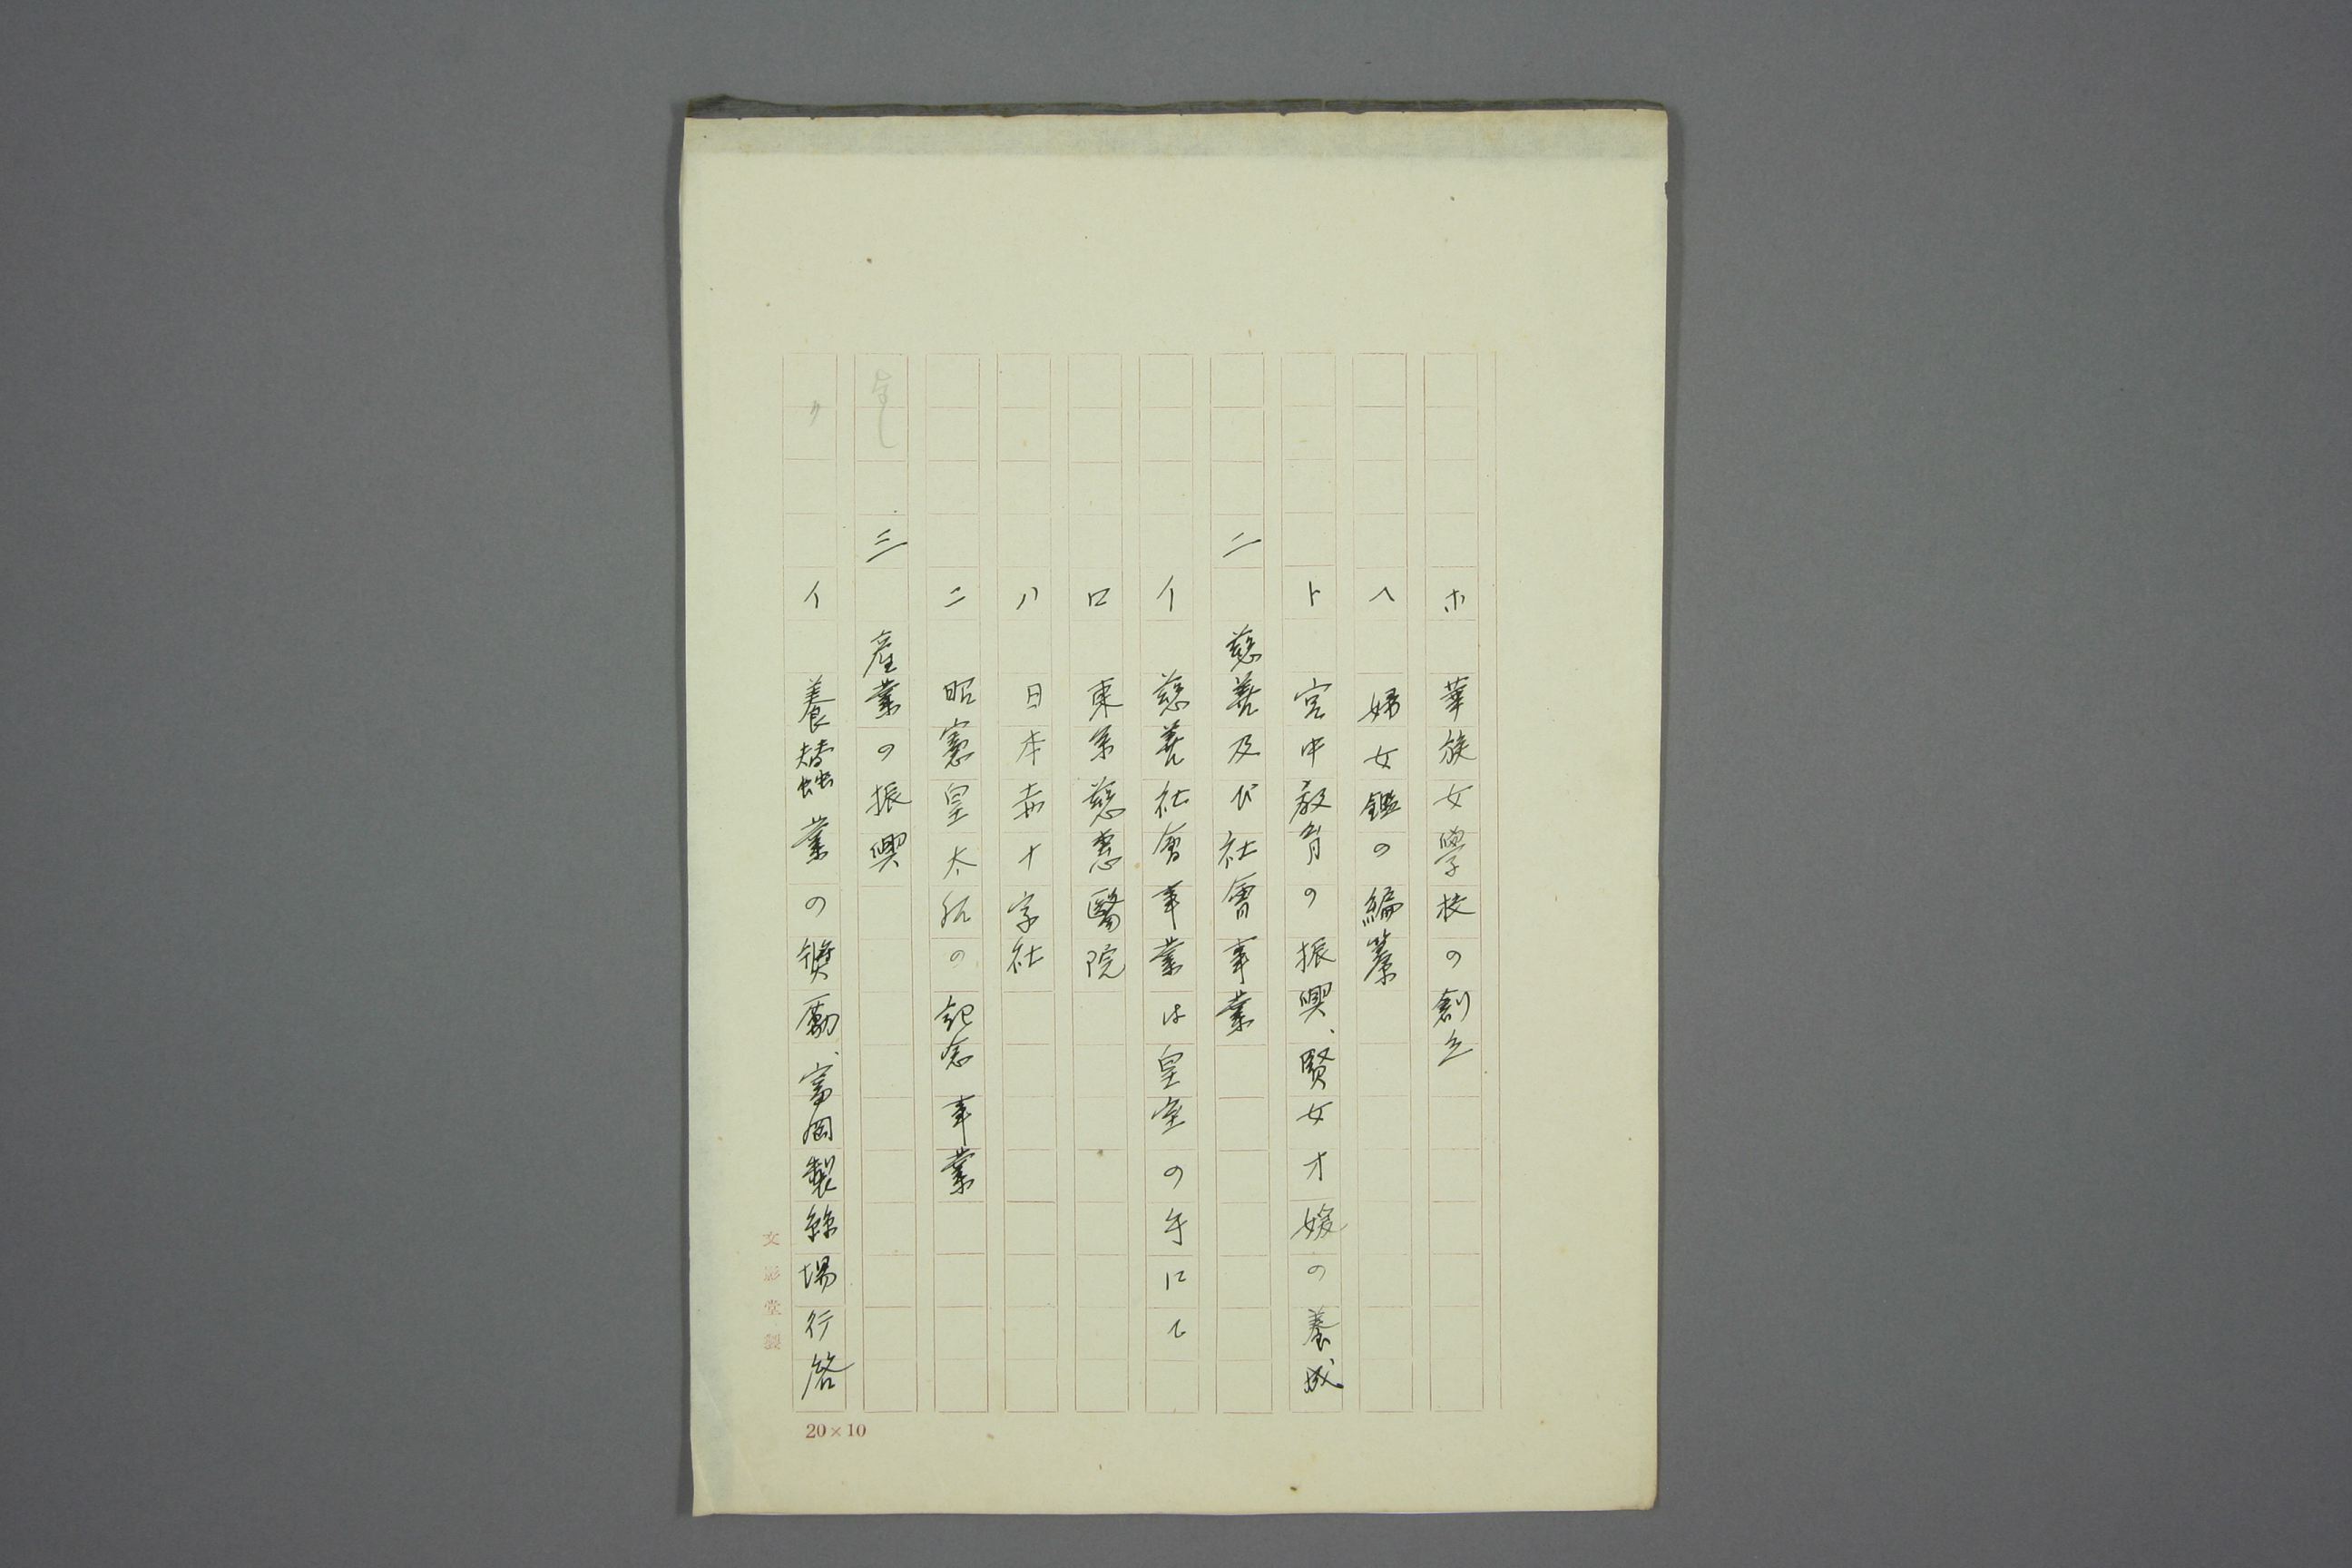 ホ 華族女學校の創立
ヘ 婦女鑑の編纂
ト 宮中教育の振興、賢女才媛の養成
二 慈善及び社會事業
イ 慈善社會事業は皇室の手にて
ロ 東京慈惠醫院
ハ 日本赤十字社
ニ 昭憲皇太后の記念事業
三 産業の振興
イ 養蠶業の奬勵、富岡製絲場行啓
文影堂製
20×10